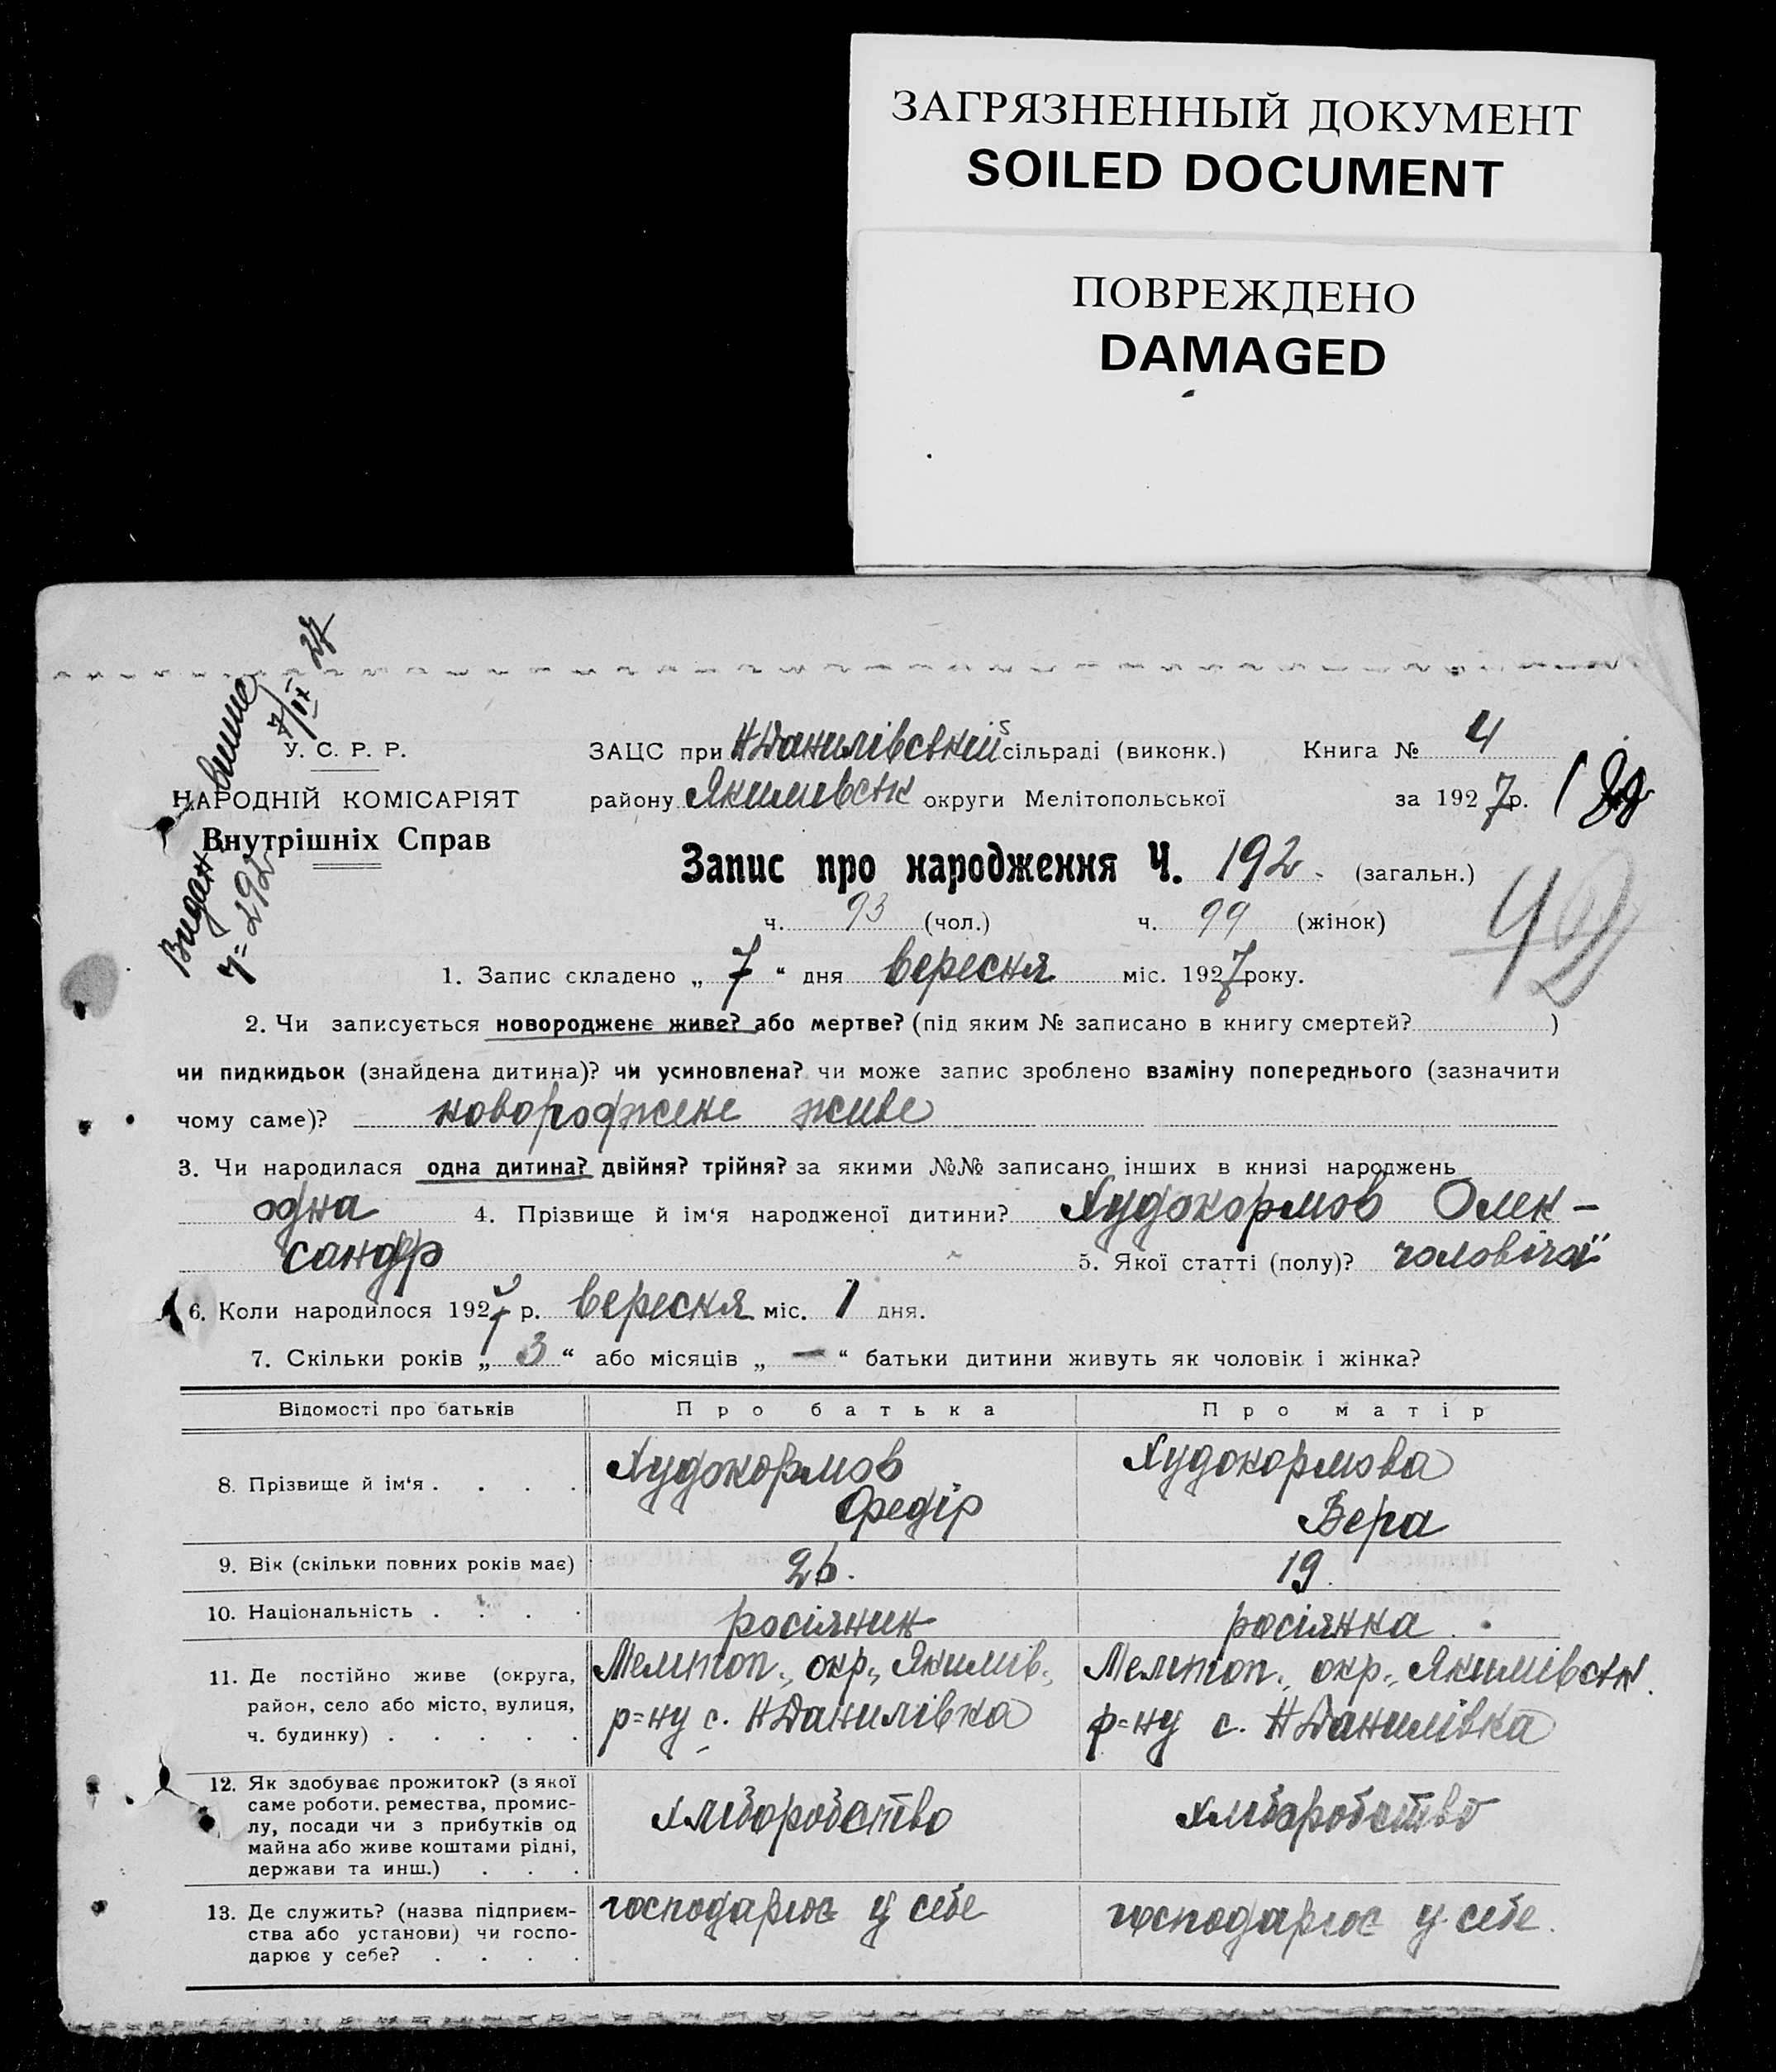 ЗАГРЯЗНЕННЫЙ ДОКУМЕНТ
SOILED DOCUMENT
ПОВРЕЖДЕНО
DAMAGED
Видан виписк 7/IX 27
ч= 292
У. С. Р. Р.
НАРОДНІЙ КОМІСАРІЯТ
Внутрішніх Справ
ЗАЦС при НДанилівській сільраді (виконк.) Книга № 4
району Якимивськ округи Мелітопольської за 1927 р.
Запис про народження Ч. 192 (загальн.)
ч. 93 (чол.) ч. 99 (жінок)
1. Запис складено „ 7 “ дня вересня міс. 1927 року.
2. Чи записується новороджене живе? або мертве? (під яким № записано в книгу смертей? )
чи пидкидьок (знайдена дитина)? чи усиновлена? чи може запис зроблено взаміну попереднього (зазначити
чому саме)? новороджене живе
3. Чи народилася одна дитина? двійня? трійня? за якими №№ записано інших в книзі народжень
одна 4. Прізвище й ім‘я народженої дитини? Худокормов Олек-
сандр 5. Якої статті (полу)? чоловічої
6. Коли народилося 1927 р. вересня міс. 1 дня.
7. Скільки років „ 3 “ або місяців „ — “ батьки дитини живуть як чоловік і жінка?
Відомості про батьків Про батька Про матір
8. Прізвище й ім‘я . . . . Худокормов Федір Худокормова Вера
9. Вік (скільки повних років має) 26. 19.
10. Національність . . . . росіяник росіянка
11. Де постійно живе (округа, район, село або місто, вулиця, ч. будинку) . . . . . Мелітоп., окр., Якимів., р=ну с. НДанилівка Мелітоп., окр., Якимівськ. р=ну с. НДанилівка
12. Як здобуває прожиток? (з якої саме роботи. ремества, промислу, посади чи з прибутків од майна або живе коштами рідні, держави та инш.) . . . хліборобство хліборобство
13. Де служить? (назва підприємства або установи) чи господарює у себе? . . . . господарює у себе господарює у себе.